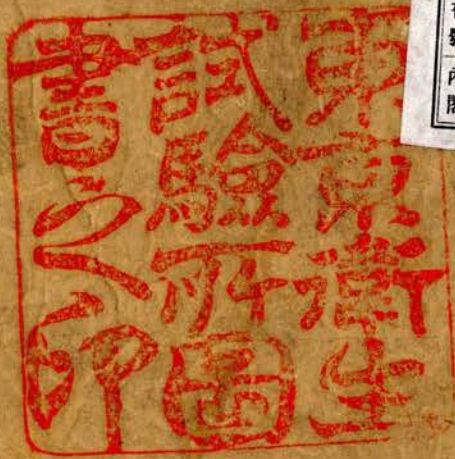 東京衛生
試驗所圖
書之印
內閣